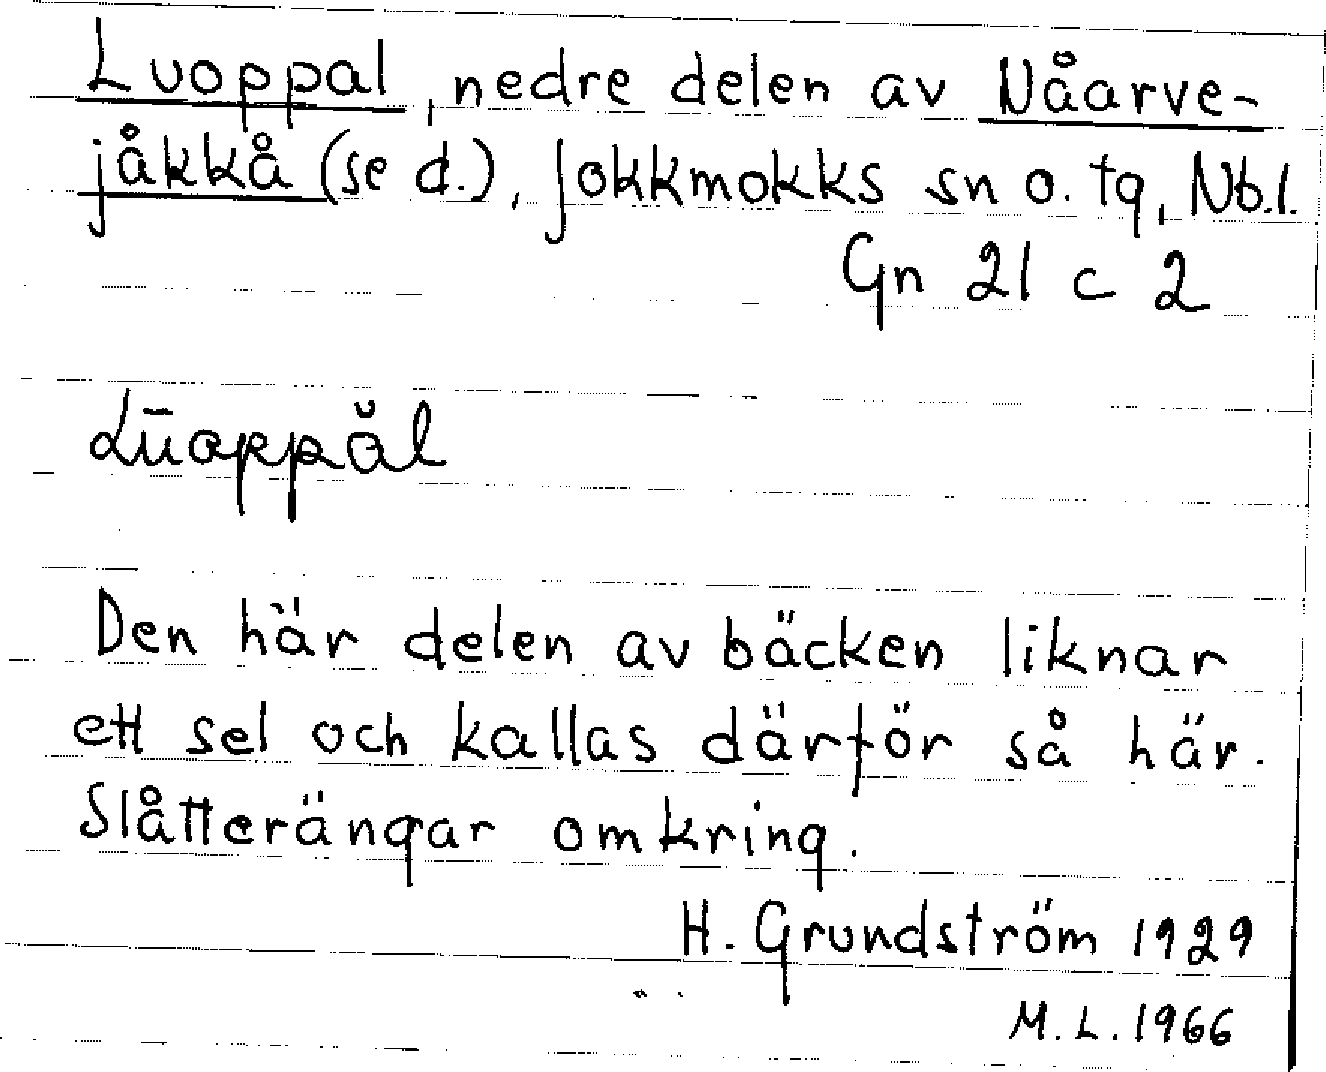 Luoppal, nedre delen av Nåarve-
jåkkå (se d.), Jokkmokks sn o. tg, Nb.l.
Gn 21 c 2
Lūoppål
Den här delen av bäcken liknar
ett sel och kallas därför så här.
Slåtterängar omkring.
H. Grundström 1929
M. L. 1966